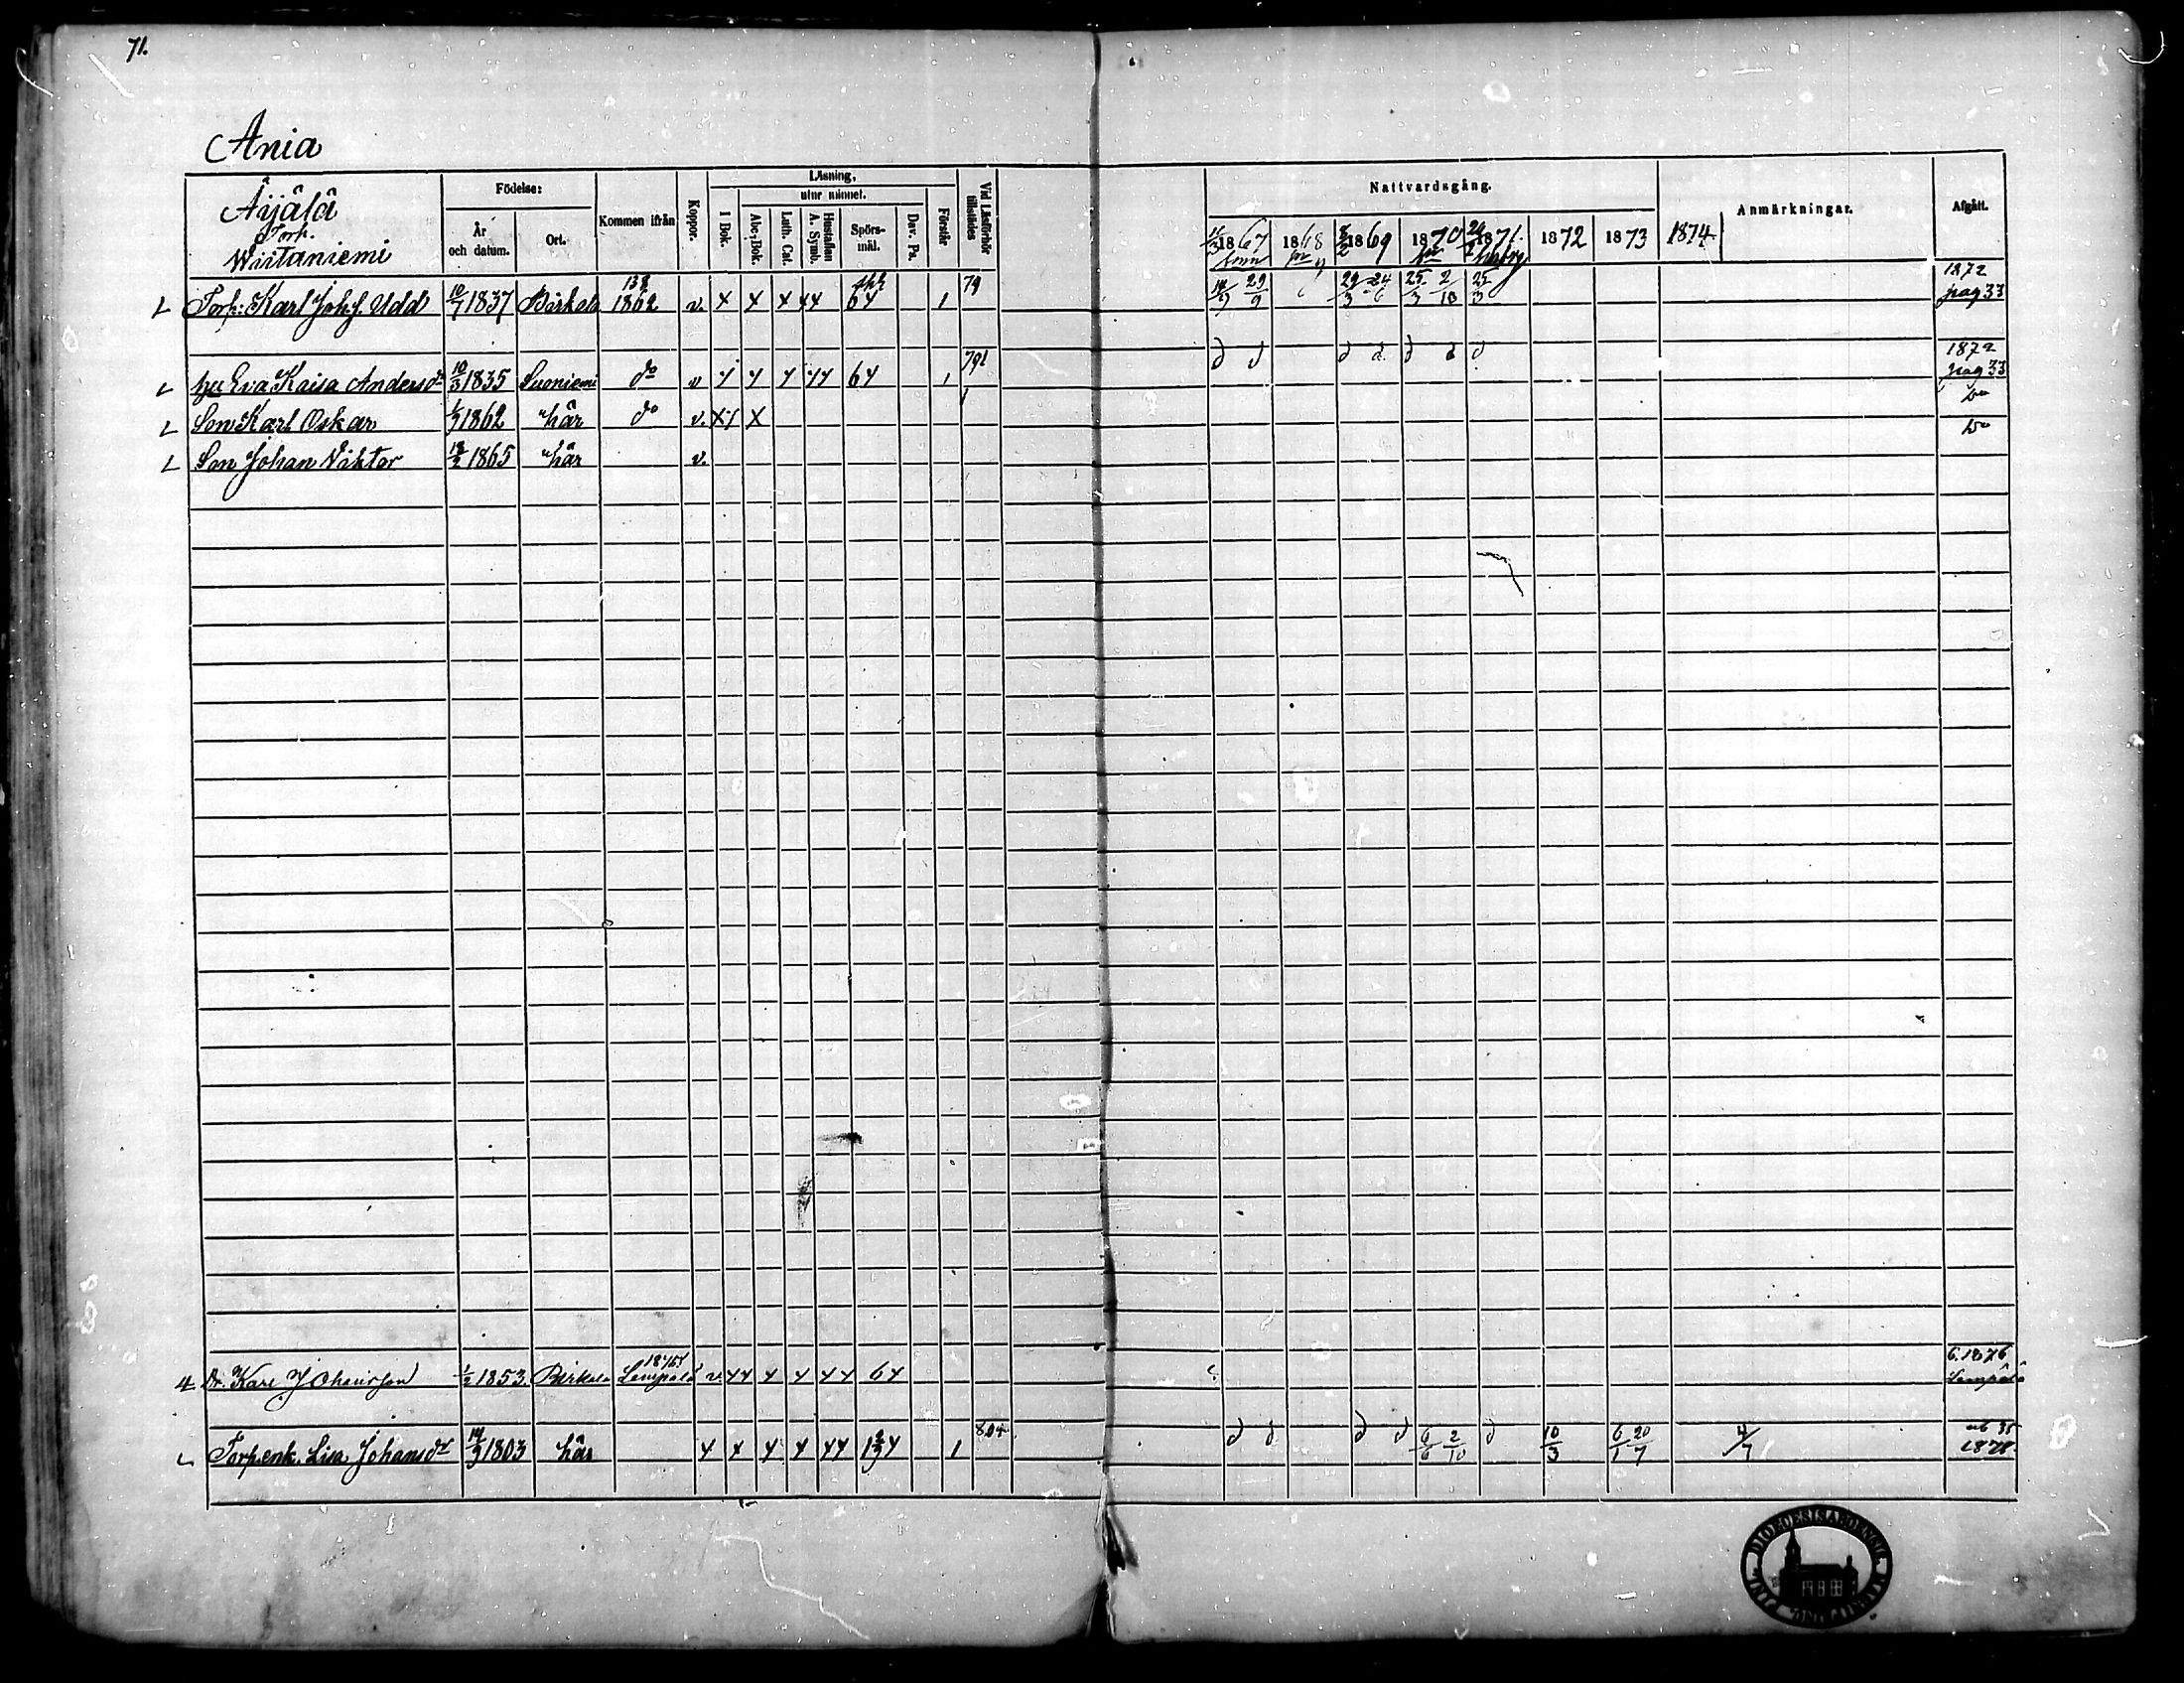 71.
Ania
Äijälä
Torp.
Wiitaniemi
Födelse:
År och datum.
Ort.
Kommen ifrån
Koppor.
Läsning,
utur minnet.
I Bok.
Abc-Bok.
Luth. Cat.
Hustaflan A. Symb.
Spörs-mål.
Dav. Ps.
Förstår
Vid Läsförhör tillstädes
Nattvardsgång.
1867 1868 1869 1870 1871 1872 1873 1874
Anmärkningar.
Afgått.
Torp: Karl Joh.s. Udd 10/7 1837 Birkala 138 1862 v. 64 1 79 29/9 29/3 24/6 25/3 2/10 25/3 1872 pag 33
hu Eva Kaisa Andersdr 10/3 1835 Suoniemi do v 64 1 79 d d d d d d d 1872 pag 33
Son Karl Oskar 1/9 1862 här do v. Do
Son Johan Viktor 1865 här v. Do
Dr. Karl Johansson 1/2 1853. Birkala Lempälä v. 64 6. 1876 Lempälä
Torp.enk. Lisa Johansdr 14/9 1803 här 1 804 d d d d 6/6 2/10 d 10/3 6/1 20/7 4/7 1878.